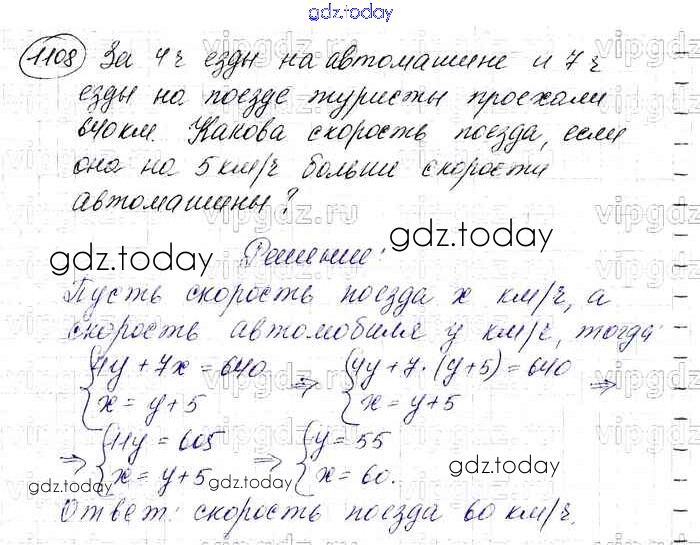 gdz.today
1108 За 4ч езды на автомашине и 7ч
езды на поезде туристы проехали
640км. Какова скорость поезда, если
она на 5км/ч больше скорости
автомашины?
vipgdz.ru
gdz.today Решение: gdz.today
Пусть скорость поезда x км/ч, а
скорость автомобиля y км/ч, тогда:
{4y + 7x = 640 ⇒ {4y + 7·(y+5) = 640 ⇒
{x = y + 5 {x = y + 5
⇒ {11y = 605 ⇒ {y = 55
{x = y + 5 {x = 60.
gdz.today gdz.today
Ответ: скорость поезда 60 км/ч.